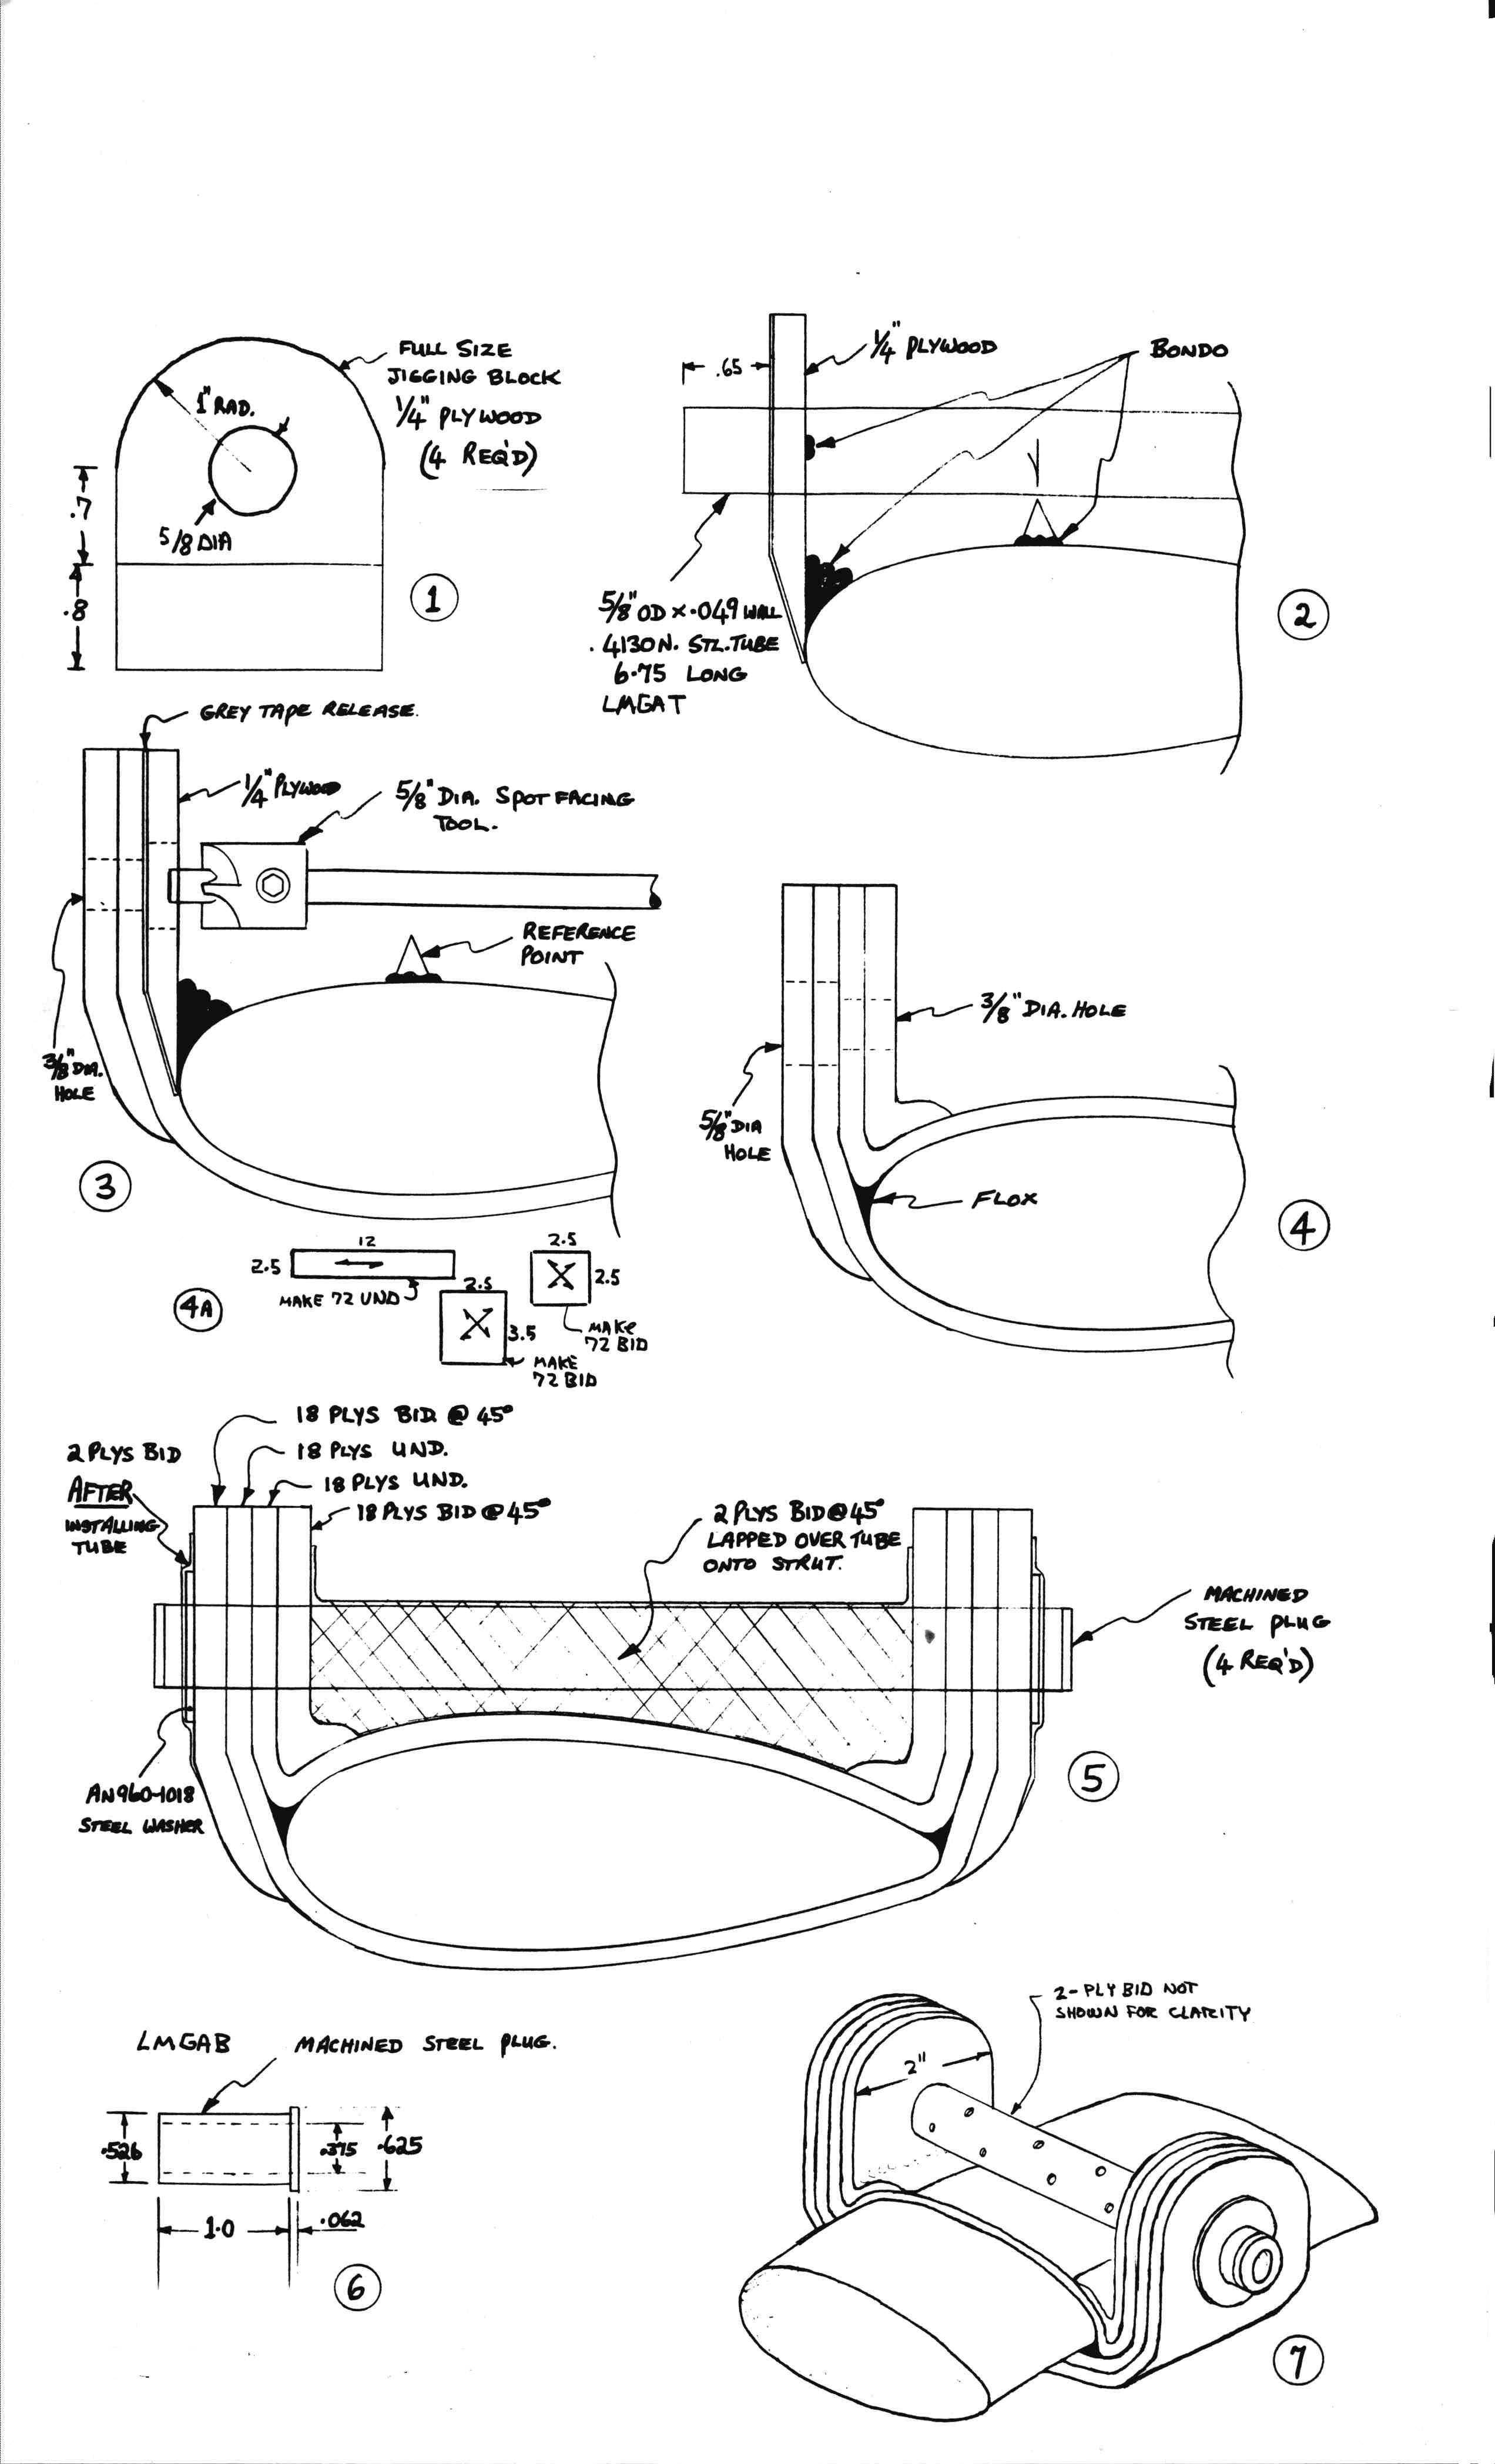 FULL SIZE
JIGGING BLOCK
1/4" PLYWOOD
(4 REQ'D)
1" RAD.
.7
5/8 DIA
.8
1
1/4" PLYWOOD
BONDO
.65
5/8" OD x .049 WALL
. 4130N. STL. TUBE
6.75 LONG
LMGAT
2
GREY TAPE RELEASE.
1/4" PLYWOOD
5/8" DIA. SPOT FACING
TOOL.
REFERENCE
POINT
3/8" DIA.
HOLE
3
3/8" DIA. HOLE
5/8" DIA
HOLE
FLOX
4
12
2.5
MAKE 72 UND
2.5
3.5
MAKE
72 BID
2.5
2.5
MAKE
72 BID
4A
18 PLYS BID @ 45°
18 PLYS UND.
18 PLYS UND.
18 PLYS BID @ 45°
2 PLYS BID
AFTER
INSTALLING
TUBE
2 PLYS BID @ 45°
LAPPED OVER TUBE
ONTO STRUT.
MACHINED
STEEL PLUG
(4 REQ'D)
AN960-1018
STEEL WASHER
5
LMGAB
MACHINED STEEL PLUG.
.526
.375
.625
1.0
.062
6
2-PLY BID NOT
SHOWN FOR CLARITY
2"
7